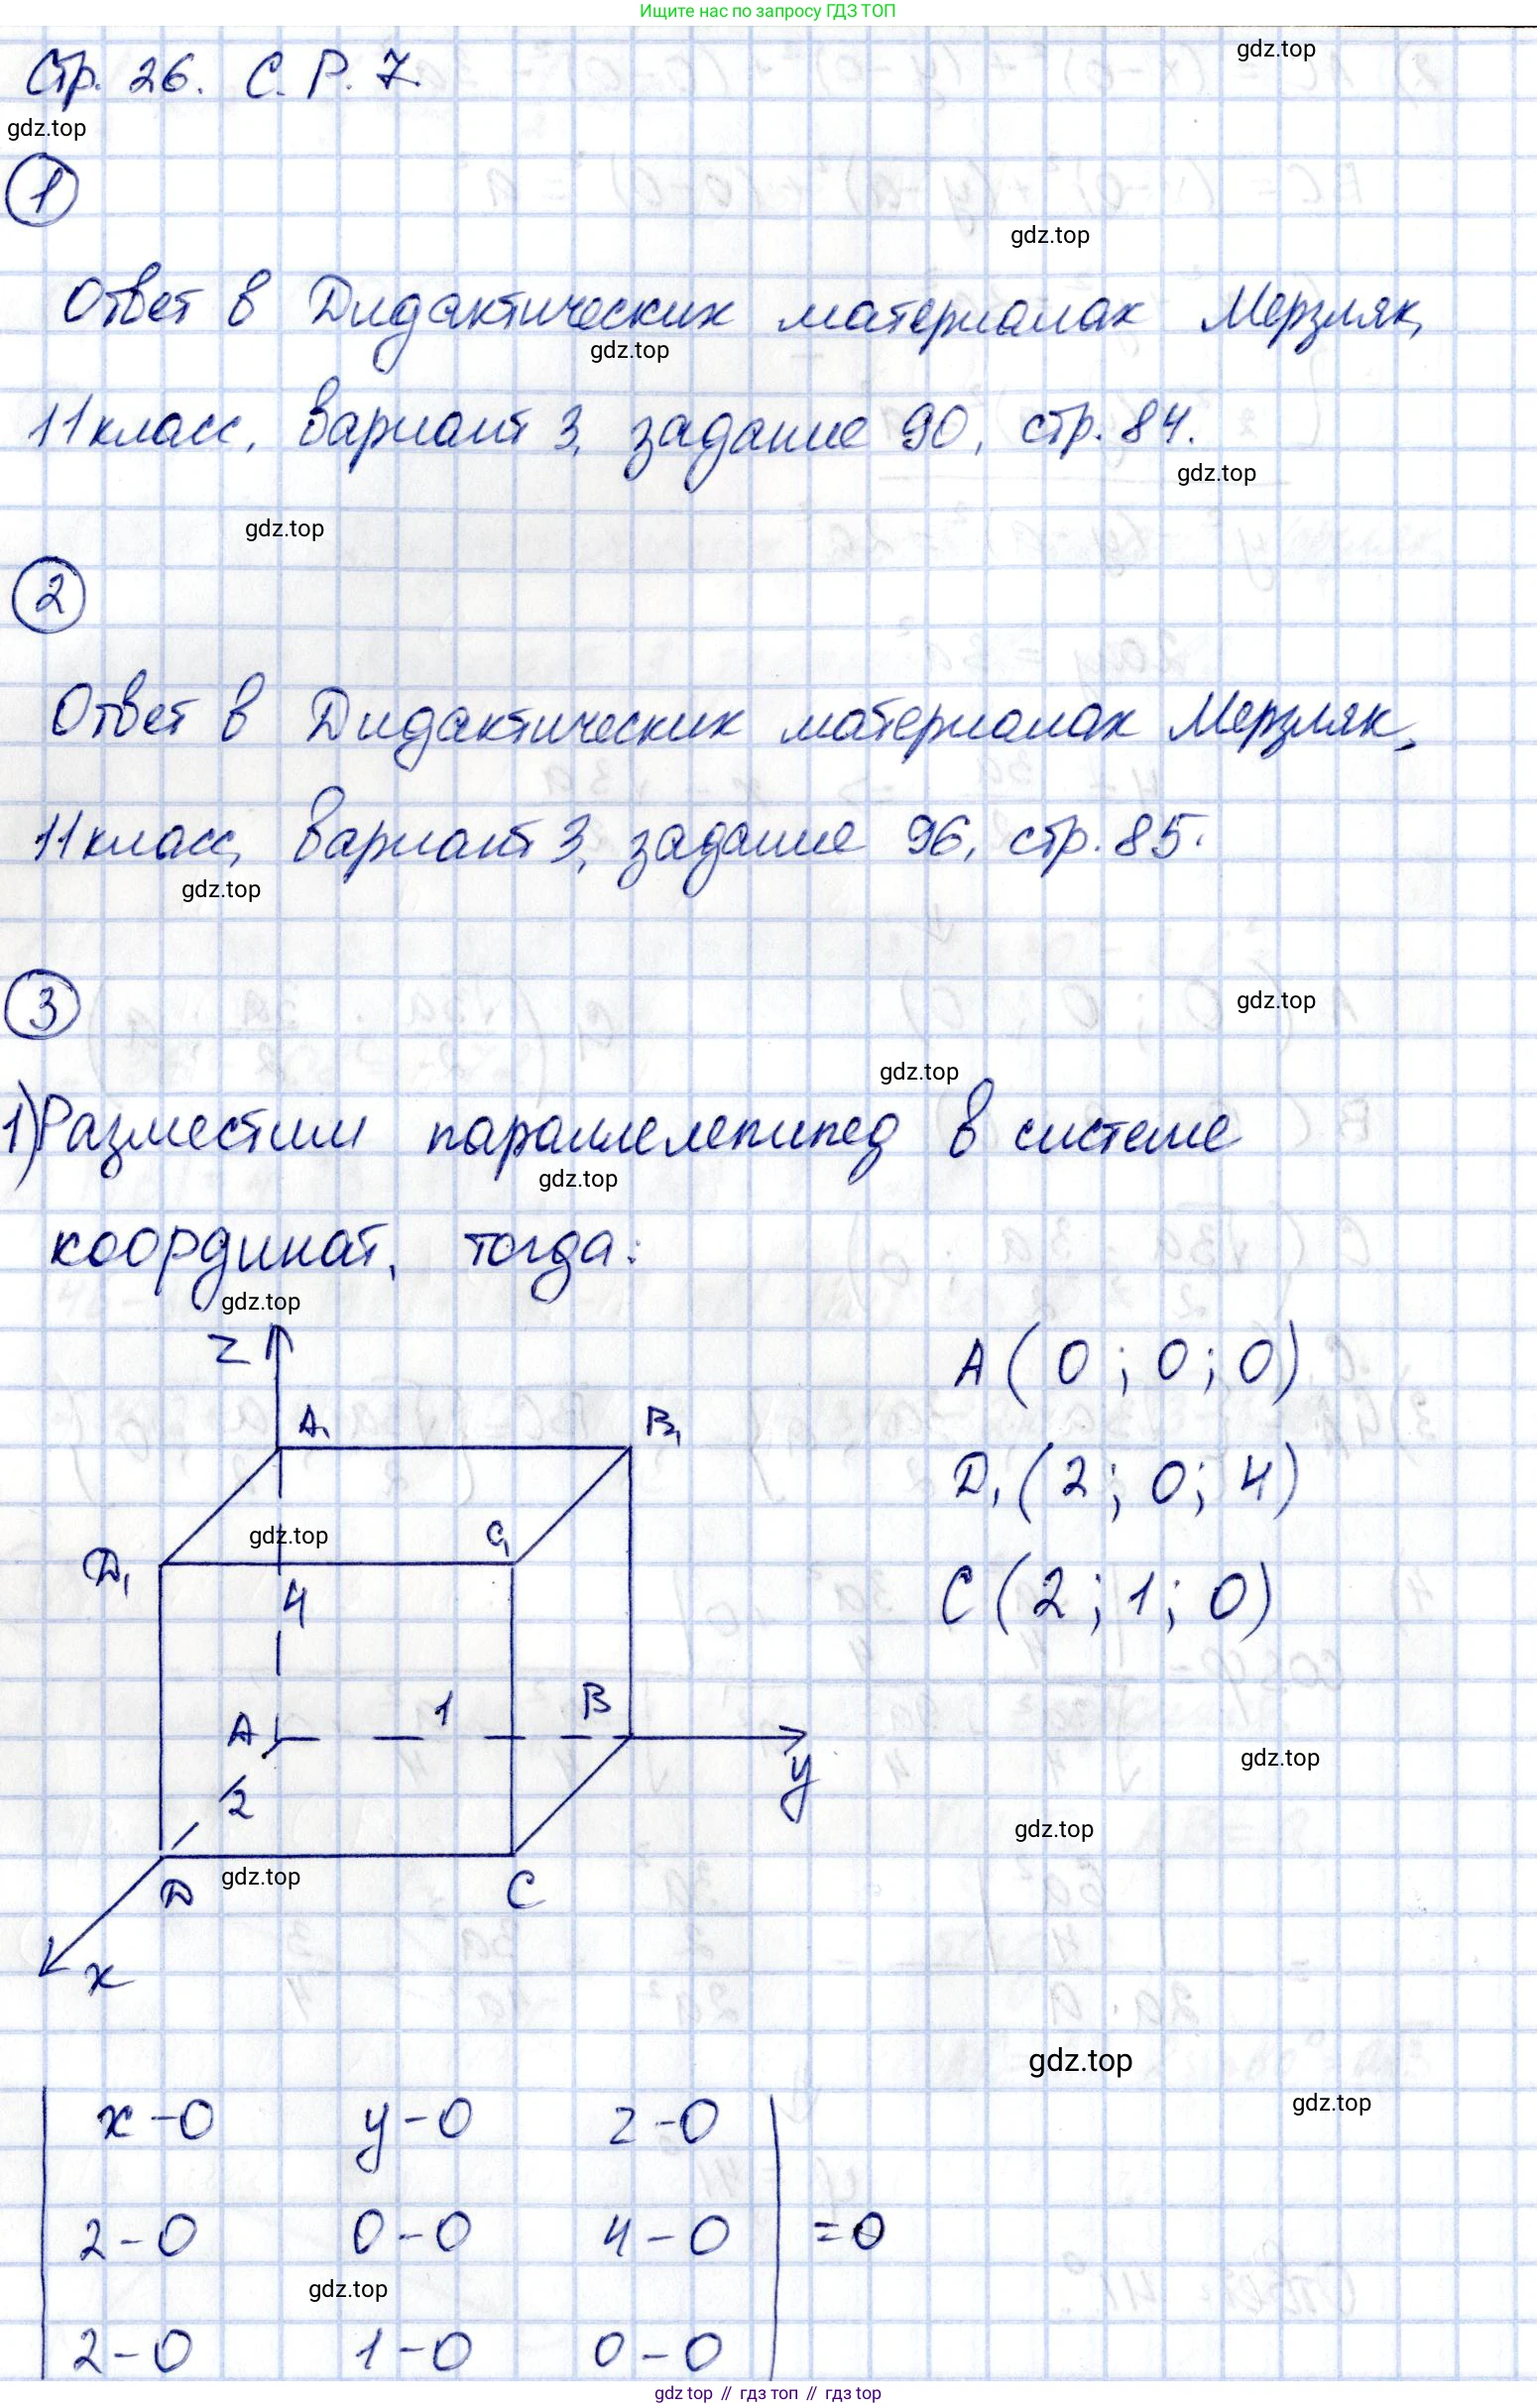 Ищите нас по запросу ГДЗ ТОП
gdz.top
Стр. 26. С. Р. 7.
gdz.top
1
gdz.top
Ответ в Дидактических материалах Мерзляк,
gdz.top
11 класс, вариант 3, задание 90, стр. 84.
gdz.top
gdz.top
2
Ответ в Дидактических материалах Мерзляк,
11 класс, вариант 3, задание 96, стр. 85.
gdz.top
3
gdz.top
gdz.top
1) Разместим параллелепипед в системе
gdz.top
координат, тогда:
gdz.top
z
A (0; 0; 0)
A₁ B₁
D₁ (2; 0; 4)
gdz.top
C₁
D₁
4
C (2; 1; 0)
A 1 B
y
gdz.top
2
gdz.top
gdz.top
D C
x
gdz.top
gdz.top
x-0 y-0 z-0
2-0 0-0 4-0 =0
gdz.top
2-0 1-0 0-0
gdz top // гдз топ // гдз top